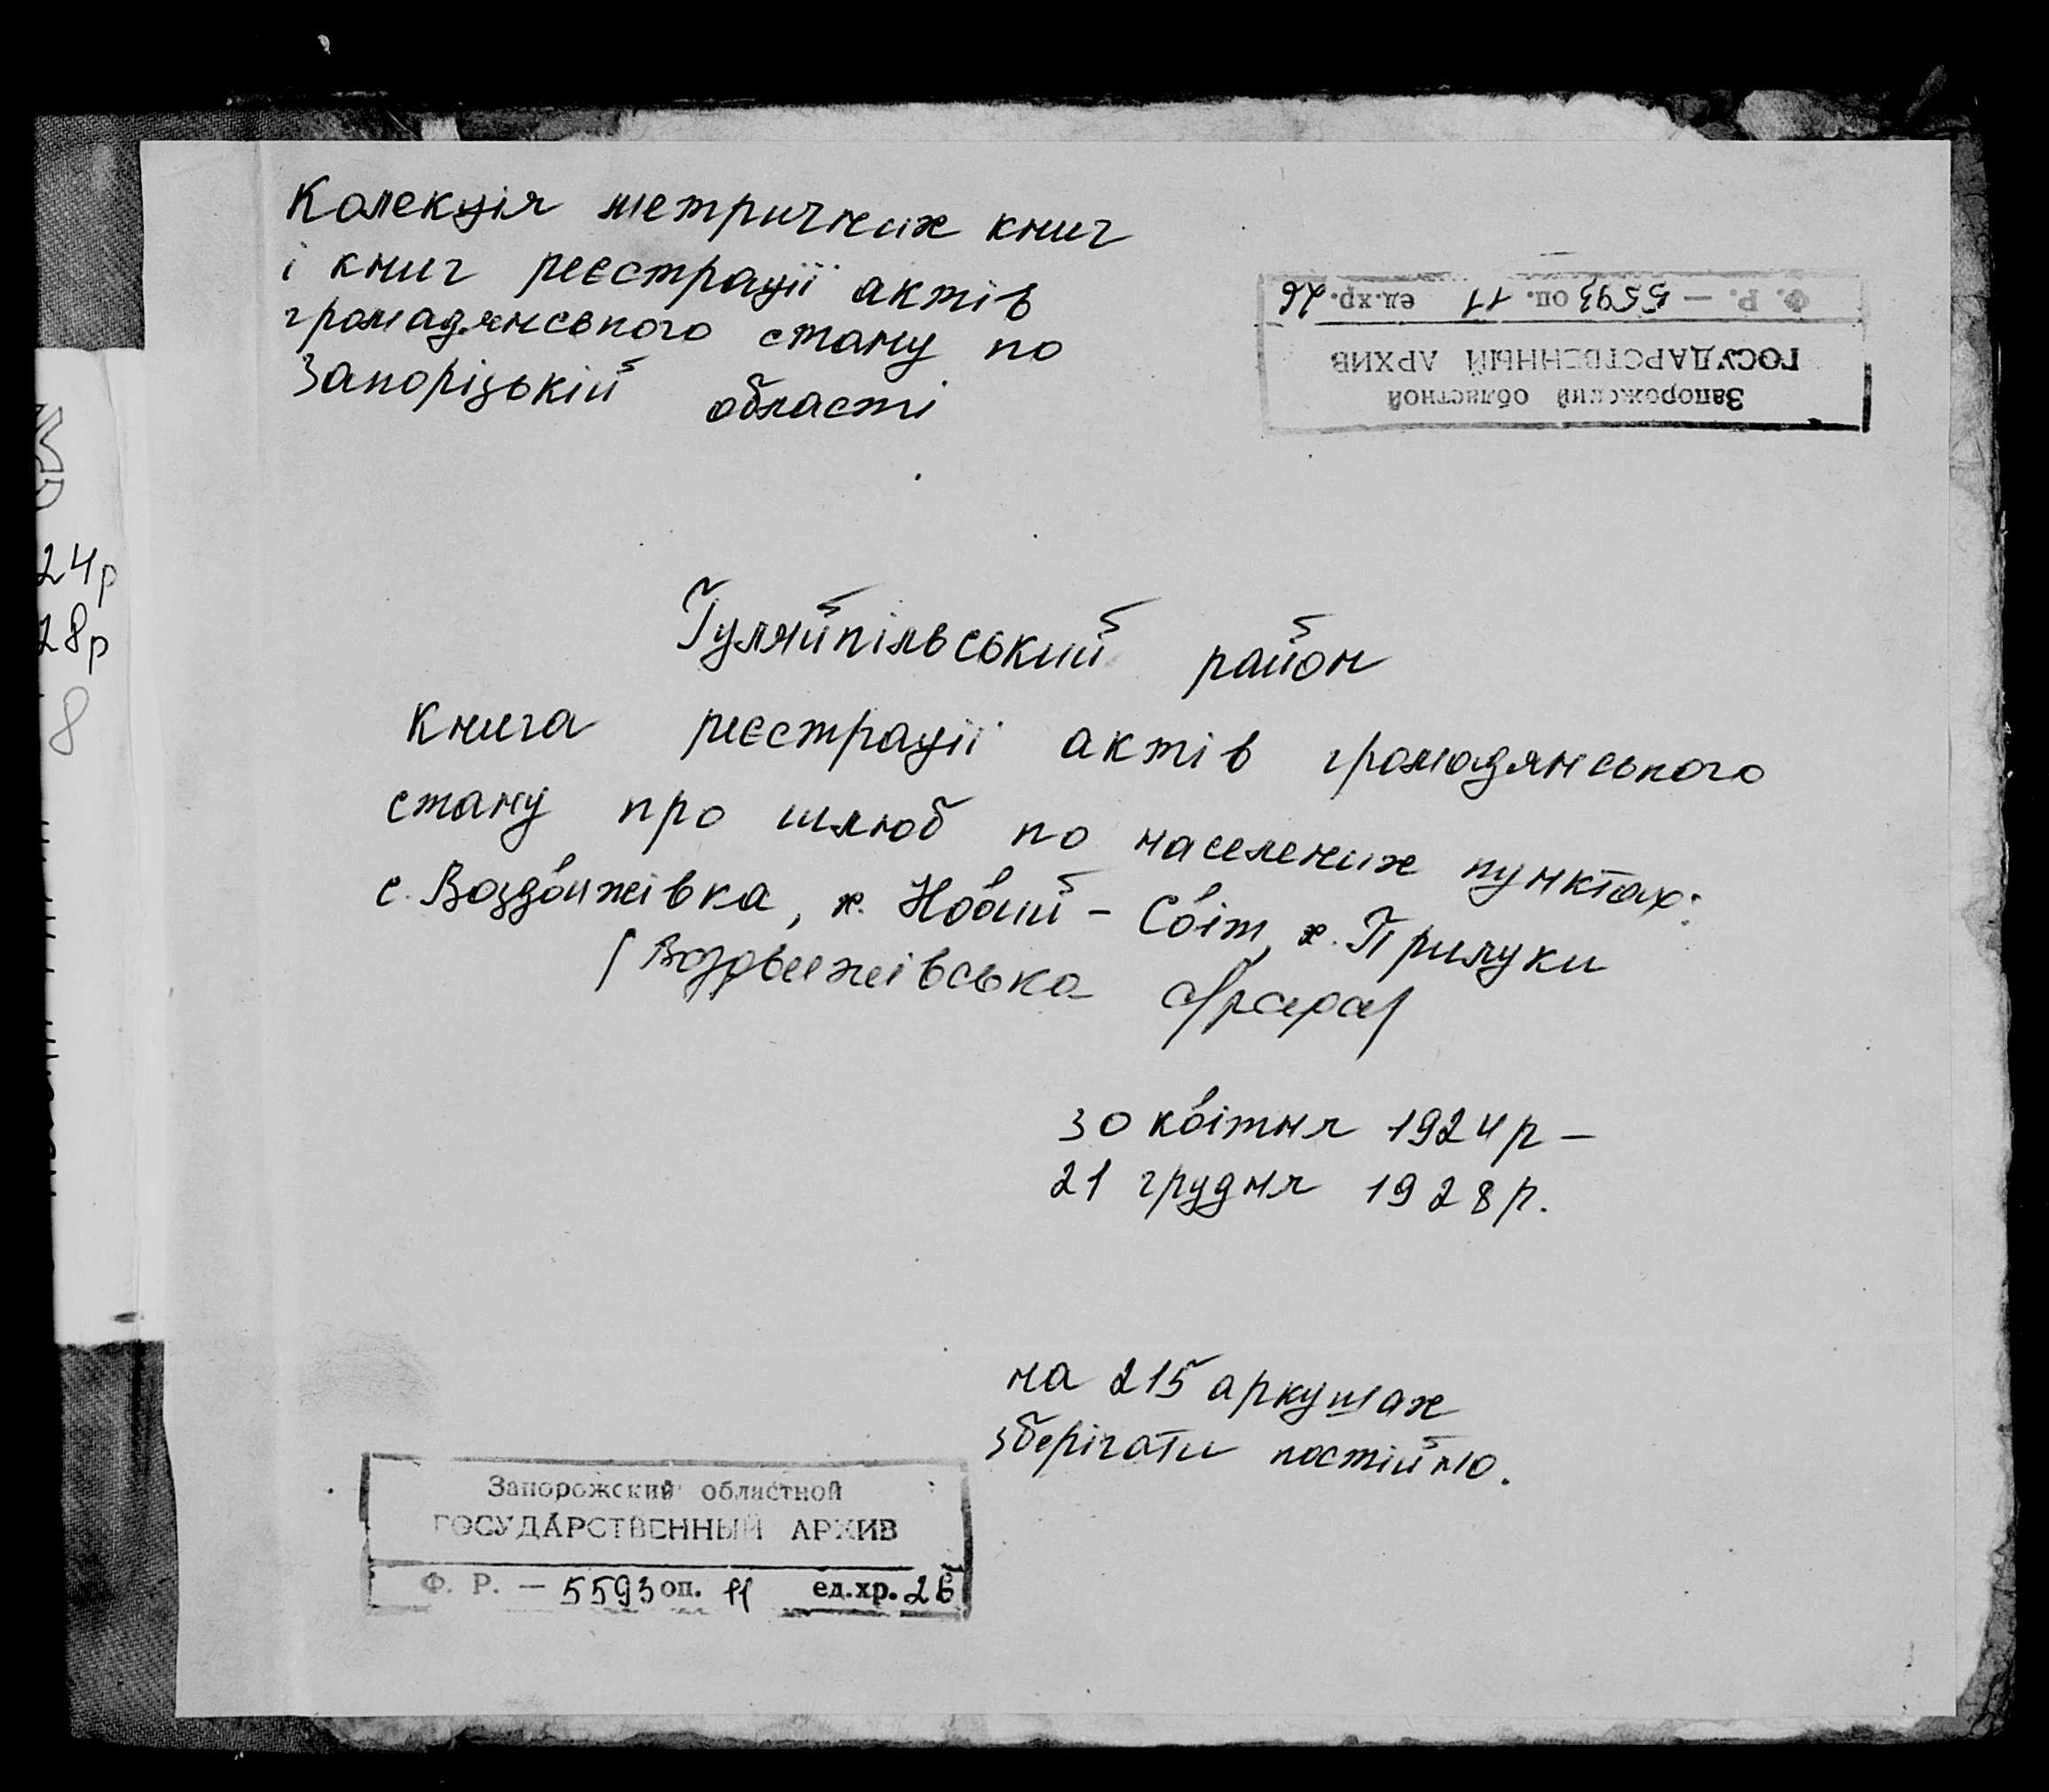 Колекція метричних книг
і книг реєстрації актів
громадянського стану по
Запорізькій області
Запорожский областной
ГОСУДАРСТВЕННЫЙ АРХИВ
Ф. Р. — 5593 оп. 11 ед.хр. 26
24р
28р
8
Гуляйпільський район
книга реєстрації актів громадянського
стану про шлюб по населених пунктах:
с. Воздвижівка, х. Новий - Світ, х. Прилуки
/Воздвижівська с/рада/
30 квітня 1924р —
21 грудня 1928р.
на 215 аркушах
зберігати постійно.
Запорожский областной
ГОСУДАРСТВЕННЫЙ АРХИВ
Ф. Р. — 5593 оп. 11 ед.хр. 26